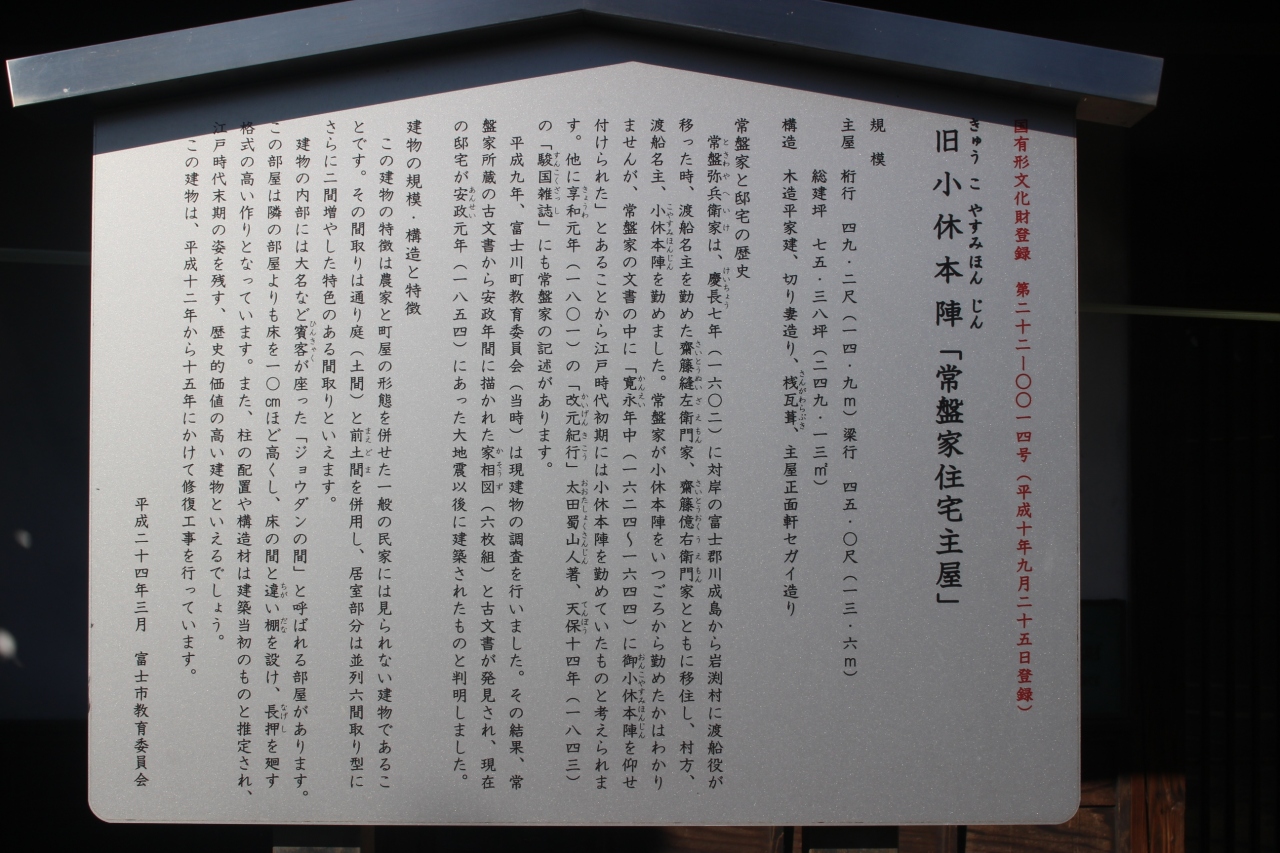 国有形文化財登録　第二十二―〇〇一四号（平成十年九月二十五日登録）
きゅう こ やすみほん じん
旧小休本陣「常盤家住宅主屋」
規　模
主屋　桁行　四九・二尺（一四・九ｍ）梁行　四五・〇尺（一三・六ｍ）
総建坪　七五・三八坪（二四九・一三㎡）
構造　木造平家建、切り妻造り、桟瓦葺、主屋正面軒セガイ造り
常盤家と邸宅の歴史
常盤弥兵衛家は、慶長七年（一六〇二）に対岸の富士郡川成島から岩渕村に渡船役が
移った時、渡船名主を勤めた齋藤縫左衛門家、齋藤億右衛門家とともに移住し、村方、
渡船名主、小休本陣を勤めました。常盤家が小休本陣をいつごろから勤めたかはわかり
ませんが、常盤家の文書の中に「寛永年中（一六二四～一六四四）に御小休本陣を仰せ
付けられた」とあることから江戸時代初期には小休本陣を勤めていたものと考えられま
す。他に享和元年（一八〇一）の「改元紀行」太田蜀山人著、天保十四年（一八四三）
の「駿国雑誌」にも常盤家の記述があります。
平成九年、富士川町教育委員会（当時）は現建物の調査を行いました。その結果、常
盤家所蔵の古文書から安政年間に描かれた家相図（六枚組）と古文書が発見され、現在
の邸宅が安政元年（一八五四）にあった大地震以後に建築されたものと判明しました。
建物の規模・構造と特徴
この建物の特徴は農家と町屋の形態を併せた一般の民家には見られない建物であるこ
とです。その間取りは通り庭（土間）と前土間を併用し、居室部分は並列六間取り型に
さらに二間増やした特色のある間取りといえます。
建物の内部には大名など賓客が座った「ジョウダンの間」と呼ばれる部屋があります。
この部屋は隣の部屋よりも床を一〇㎝ほど高くし、床の間と違い棚を設け、長押を廻す
格式の高い作りとなっています。また、柱の配置や構造材は建築当初のものと推定され、
江戸時代末期の姿を残す、歴史的価値の高い建物といえるでしょう。
この建物は、平成十二年から十五年にかけて修復工事を行っています。
平成二十四年三月　富士市教育委員会